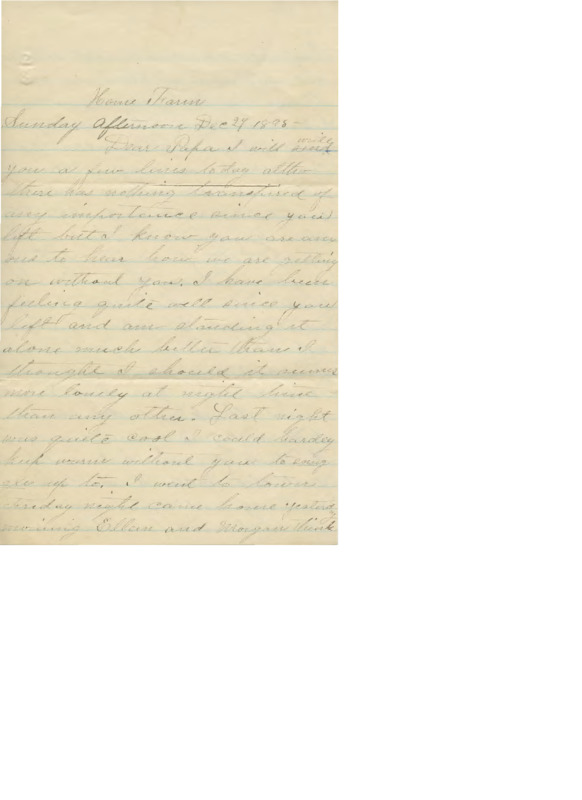 Home Farm
Sunday afternoon Dec 29 1895 -
Dear Papa I will write
you a few lines to day altho
there has nothing transpired of
any importance since you
left but I know you are anx
ious to hear how we are getting
on without you. I have been
feeling quite well since you
left and am standing it
alone much better than I
thought I should it seems
more lonely at night time
than any other. Last night
was quite cool I could hardly
keep warm without you to snug
gle up to. I went to town
Friday night came home yesterday
morning Ellen and Morgan think